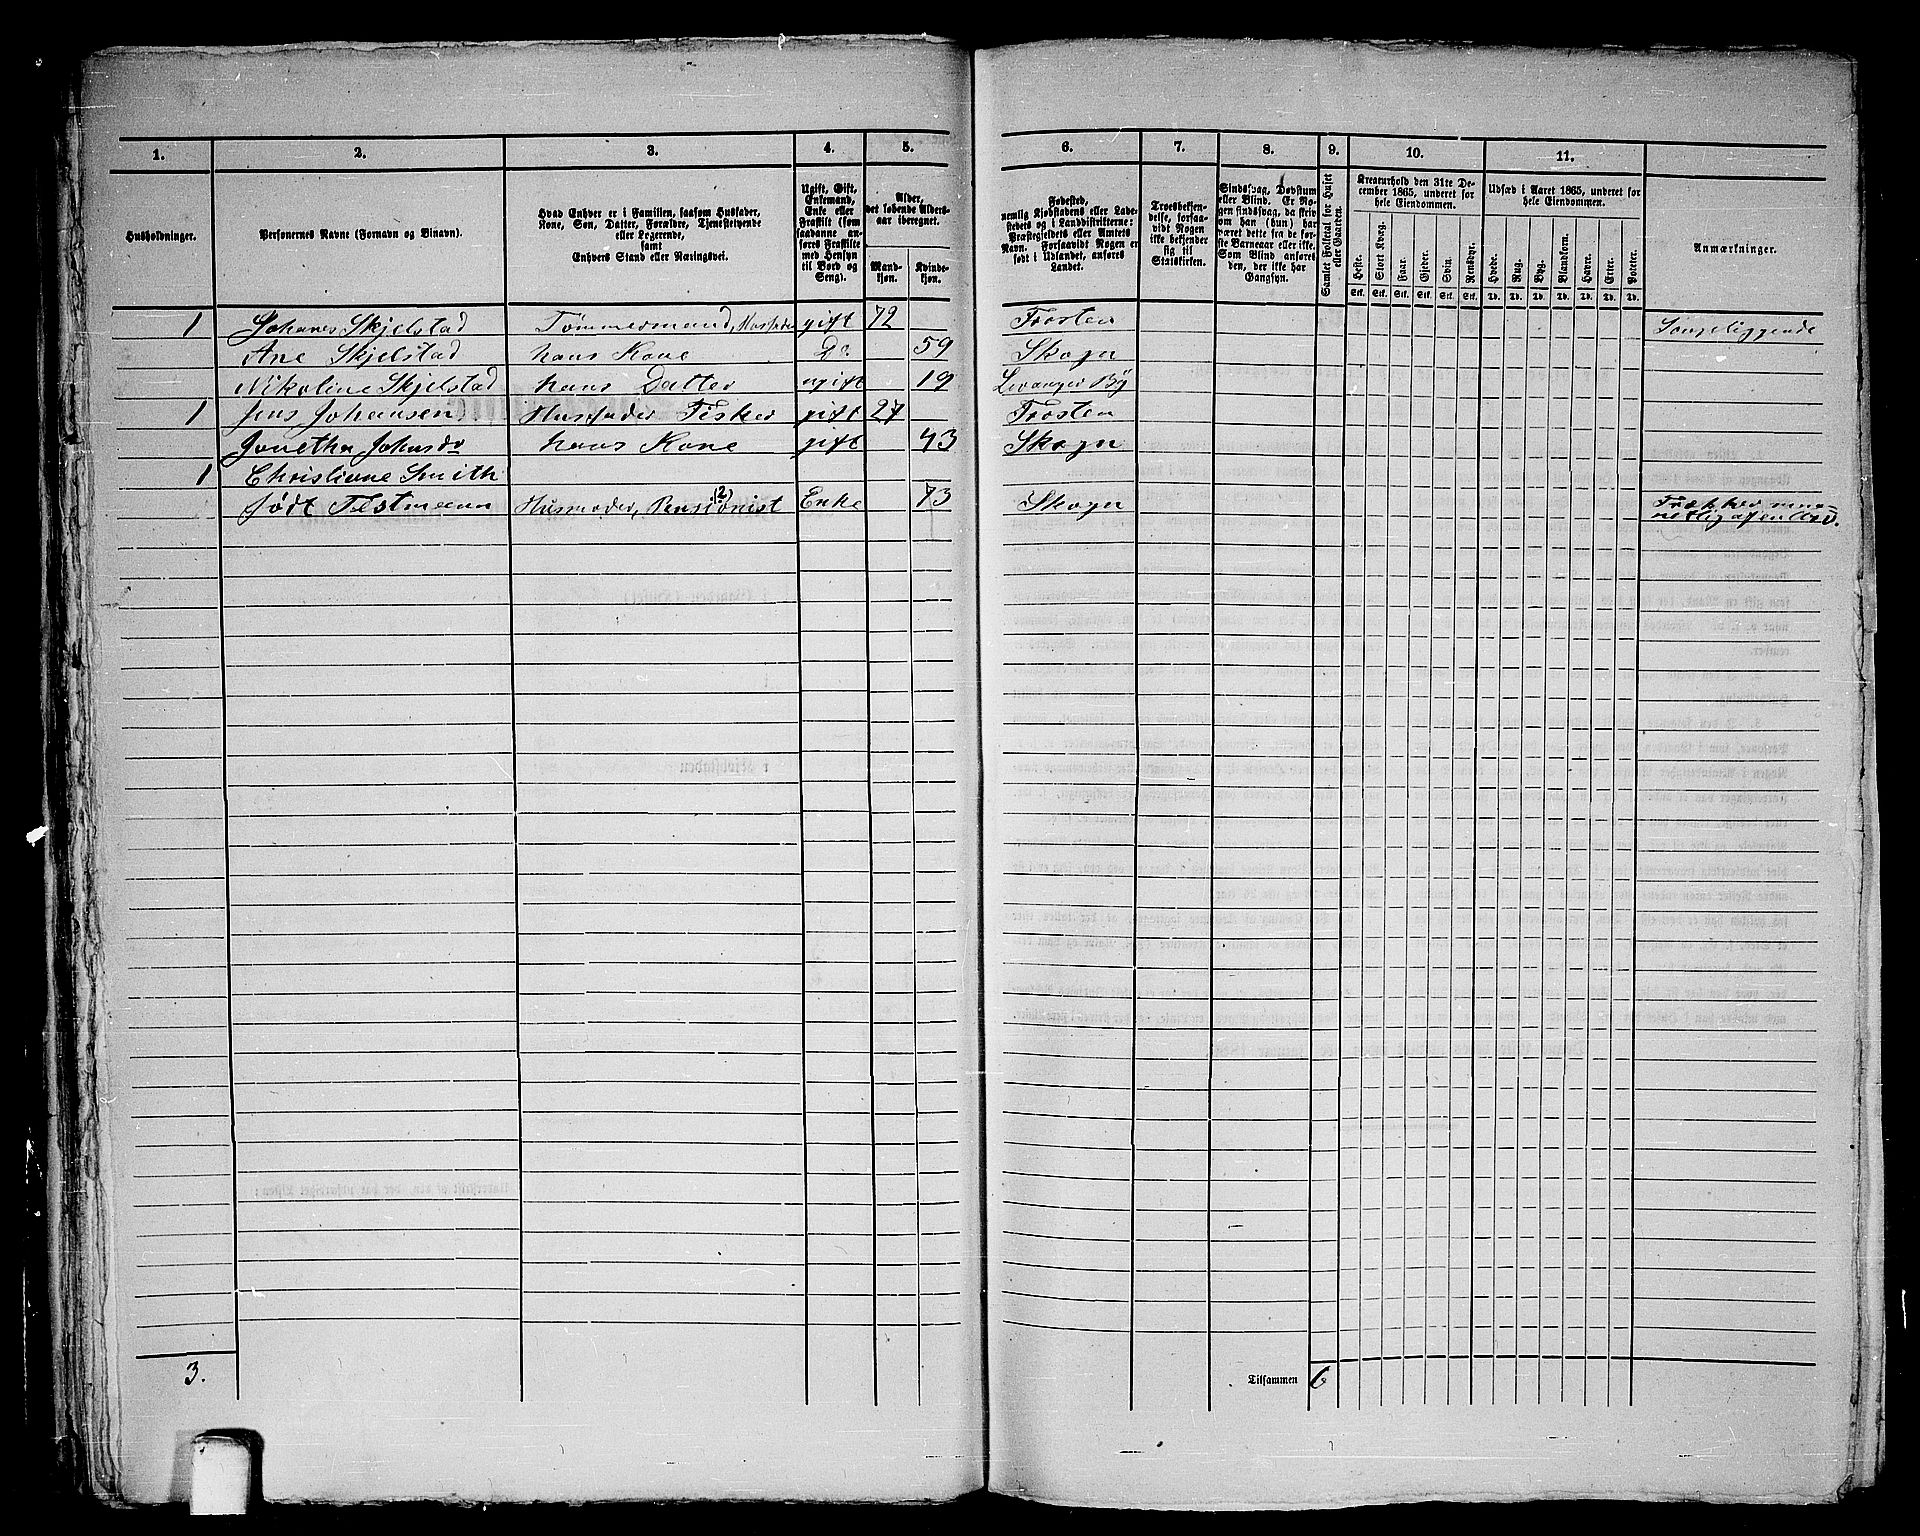 1. 2. 3. 4. 5. 6. 7. 8. 9. 10. 11.
Husholdninger.
Personernes Navne (Fornavn og Binavn).
Hvad Enhver er i Familien, saasom Husfader,
Kone, Søn, Datter, Forældre, Tjenestetyende
eller Logerende,
samt
Enhvers Stand eller Næringsvei.
Ugift, Gift,
Enkemand,
Enke eller
Fraskilt (som
saadanne an-
føres Fraskilte
med Hensyn
til Bord og
Seng).
Alder,
det løbende Alders-
aar iberegnet.
Mand-
kjøn.
Kvinde-
kjøn.
Fødested,
nemlig Kjøbstadens eller Lade-
stedets og i Landdistrikterne:
Præstegjeldets eller Amtets
Navn. Forsaavidt Nogen er
født i Udlandet, anføres
Landet.
Troesbekjen-
delse, forsaa-
vidt Nogen
ikke bekjender
sig til
Statskirken.
Sindssvag, Døvstum
eller Blind. Er No-
gen sindssvag, da skriv
om han (hun) har
været dette fra de før-
ste Barneaar eller ikke.
Som Blind anføres
den, der ikke har
Gangsyn.
Samlet Folketal for Huset
eller Gaarden.
Kreaturhold den 31te De-
cember 1865, underet for
hele Eiendommen.
Heste. Stort Kvæg. Faar. Gjeder. Svin. Rensdyr.
Stk. Stk. Stk. Stk. Stk. Stk.
Udsæd i Aaret 1865, underet for
hele Eiendommen.
Hvede. Rug. Byg. Blandkorn. Havre. Erter. Poteter.
Td. Td. Td. Td. Td. Td. Td.
Anmærkninger.
1 Johanes Skjelstad Tømmermand, Husfader gift 72 Frosten Sengeliggende
Ane Skjelstad hans Kone Do 59 Skogn
Nikoline Skjelstad hans Datter ugift 19 Levanger By
1 Jens Johansen Husfader Fisker gift 27 Frosten
Jonetha Johnsdr hans Kone gift 43 Skogn
1 Christiane Smith
født Festmann Husmoder, Pensionist (2) Enke 73 Skogn
3.
Tilsammen 6